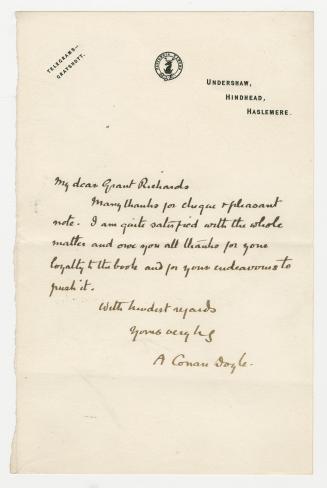 TELEGRAMS—
GRAYSHOTT.
UNDERSHAW,
HINDHEAD,
HASLEMERE.
My dear Grant Richards
Many thanks for cheque & pleasant
note. I am quite satisfied with the whole
matter and owe you all thanks for your
loyalty to the book and for your endeavours to
push it.
With kindest regards
Yours
A Conan Doyle.